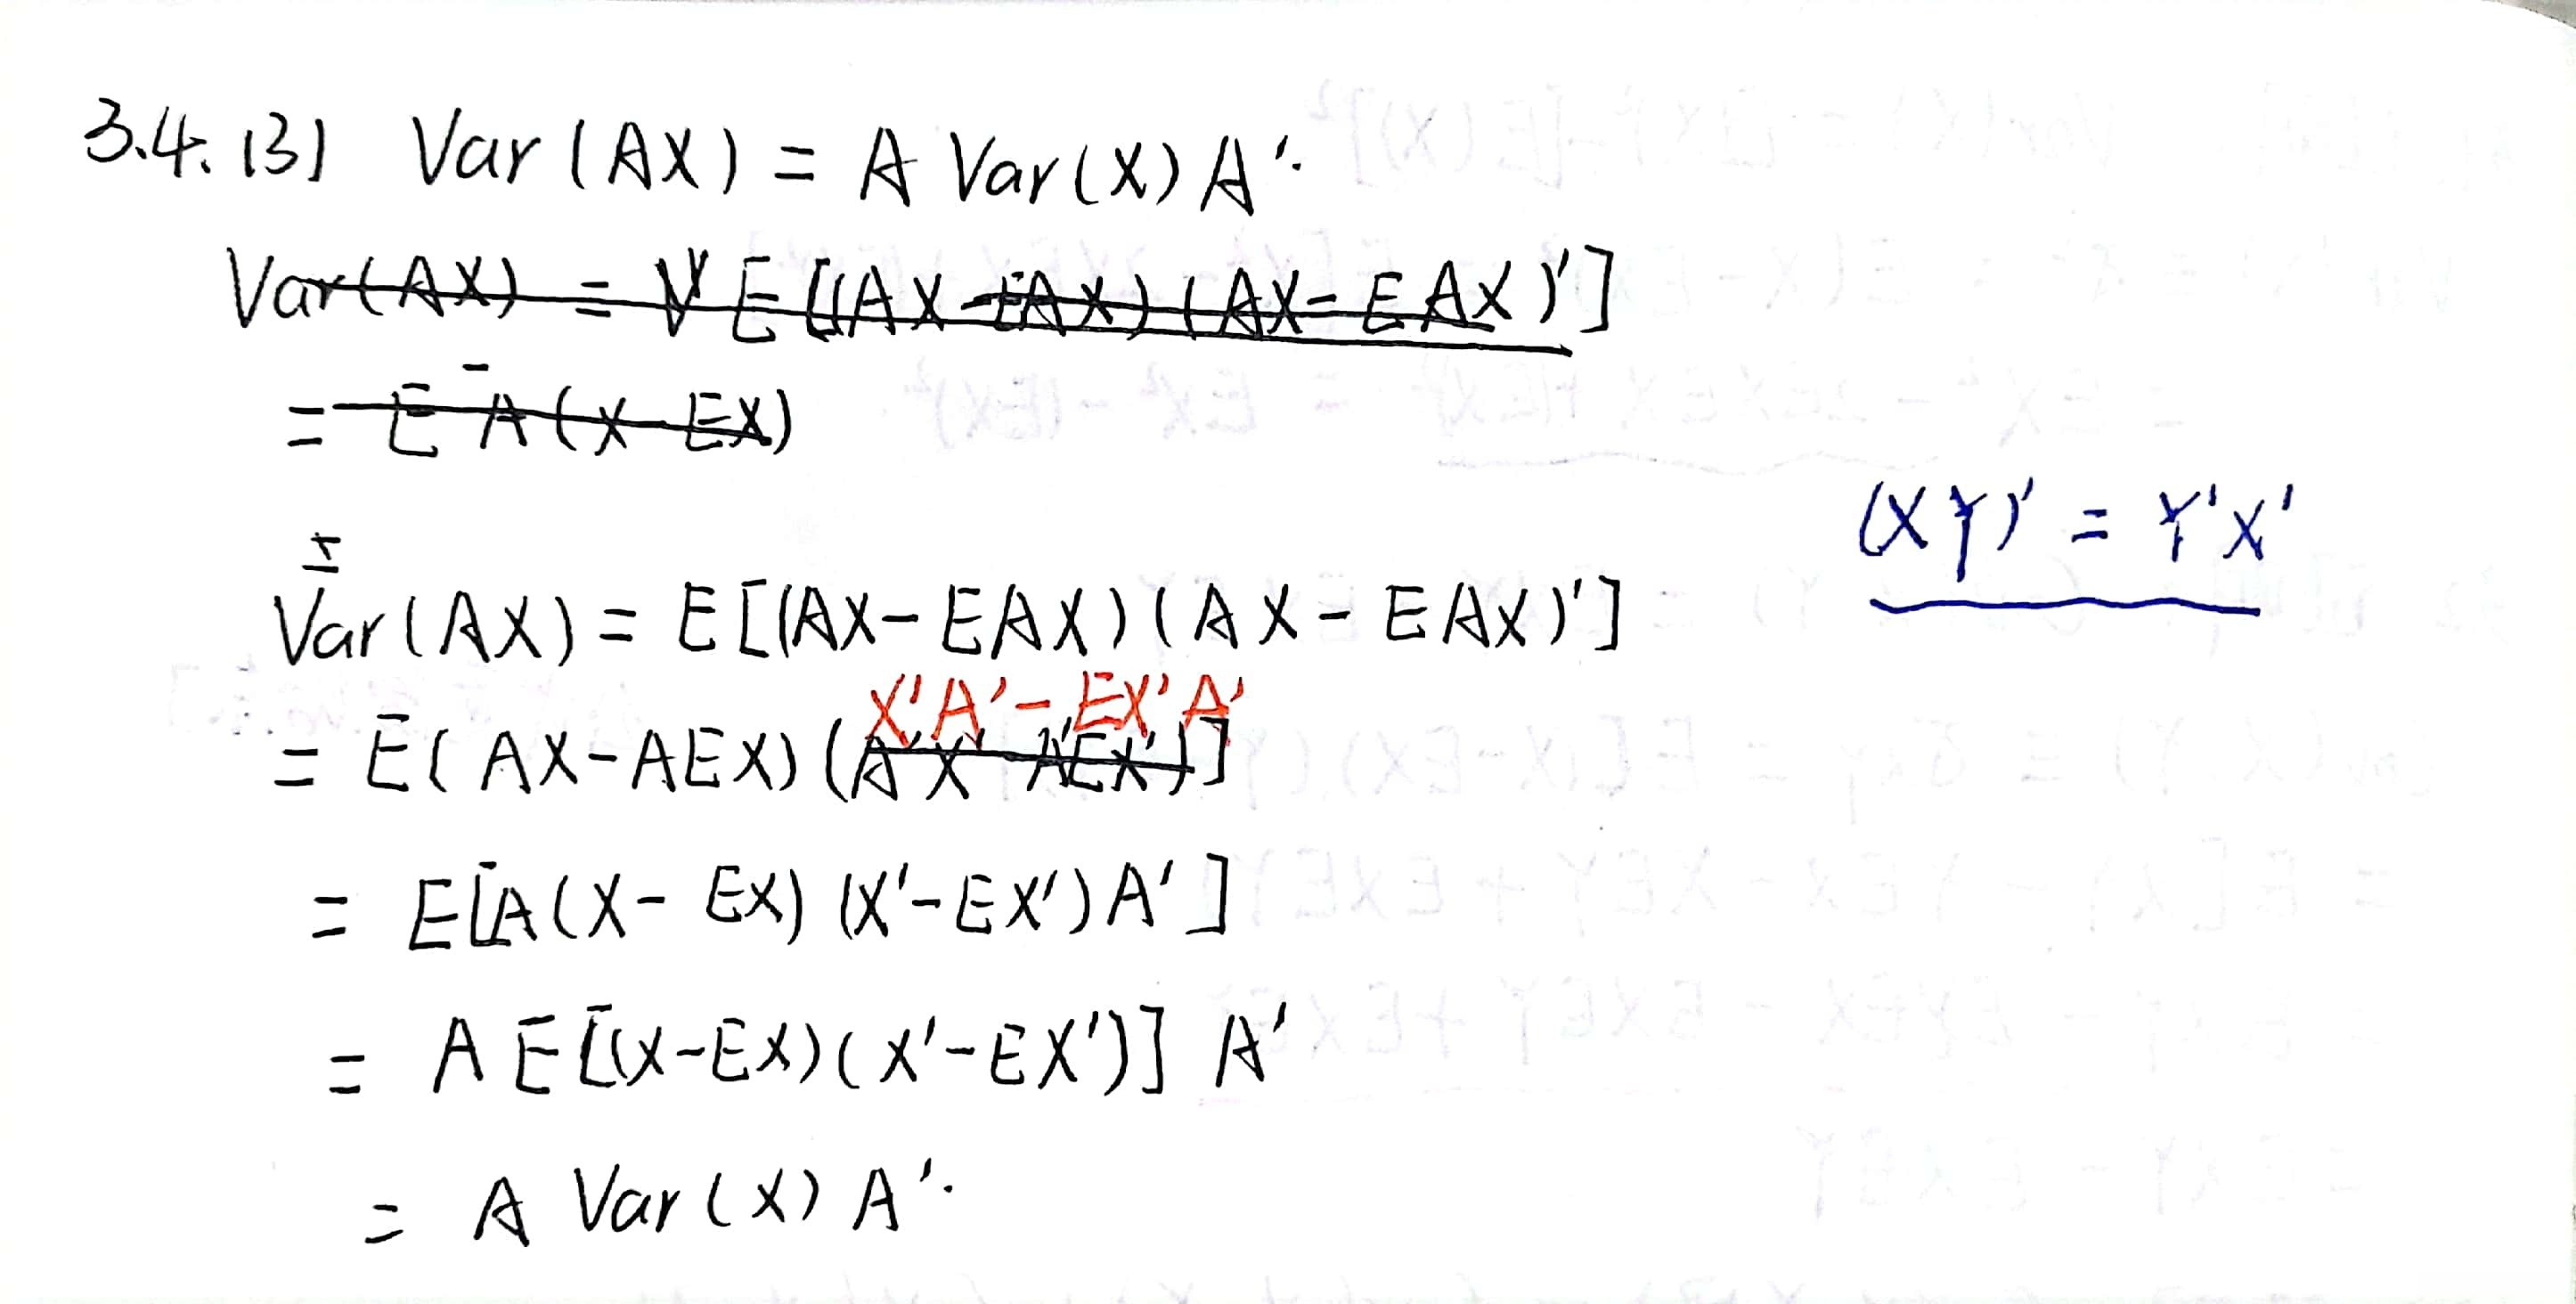 3.4.(3) Var(AX) = A Var(X) A'.
Var(AX) = E[(AX-EAX)(AX-EAX)']
= E A(X-EX)
(XY)' = Y'X'
Var(AX) = E[(AX-EAX)(AX-EAX)']
X'A'-EX'A'
= E(AX-AEX)(A'X'-A'EX')]
= E[A(X-EX)(X'-EX')A']
= A E[(X-EX)(X'-EX')] A'
= A Var(X) A'.